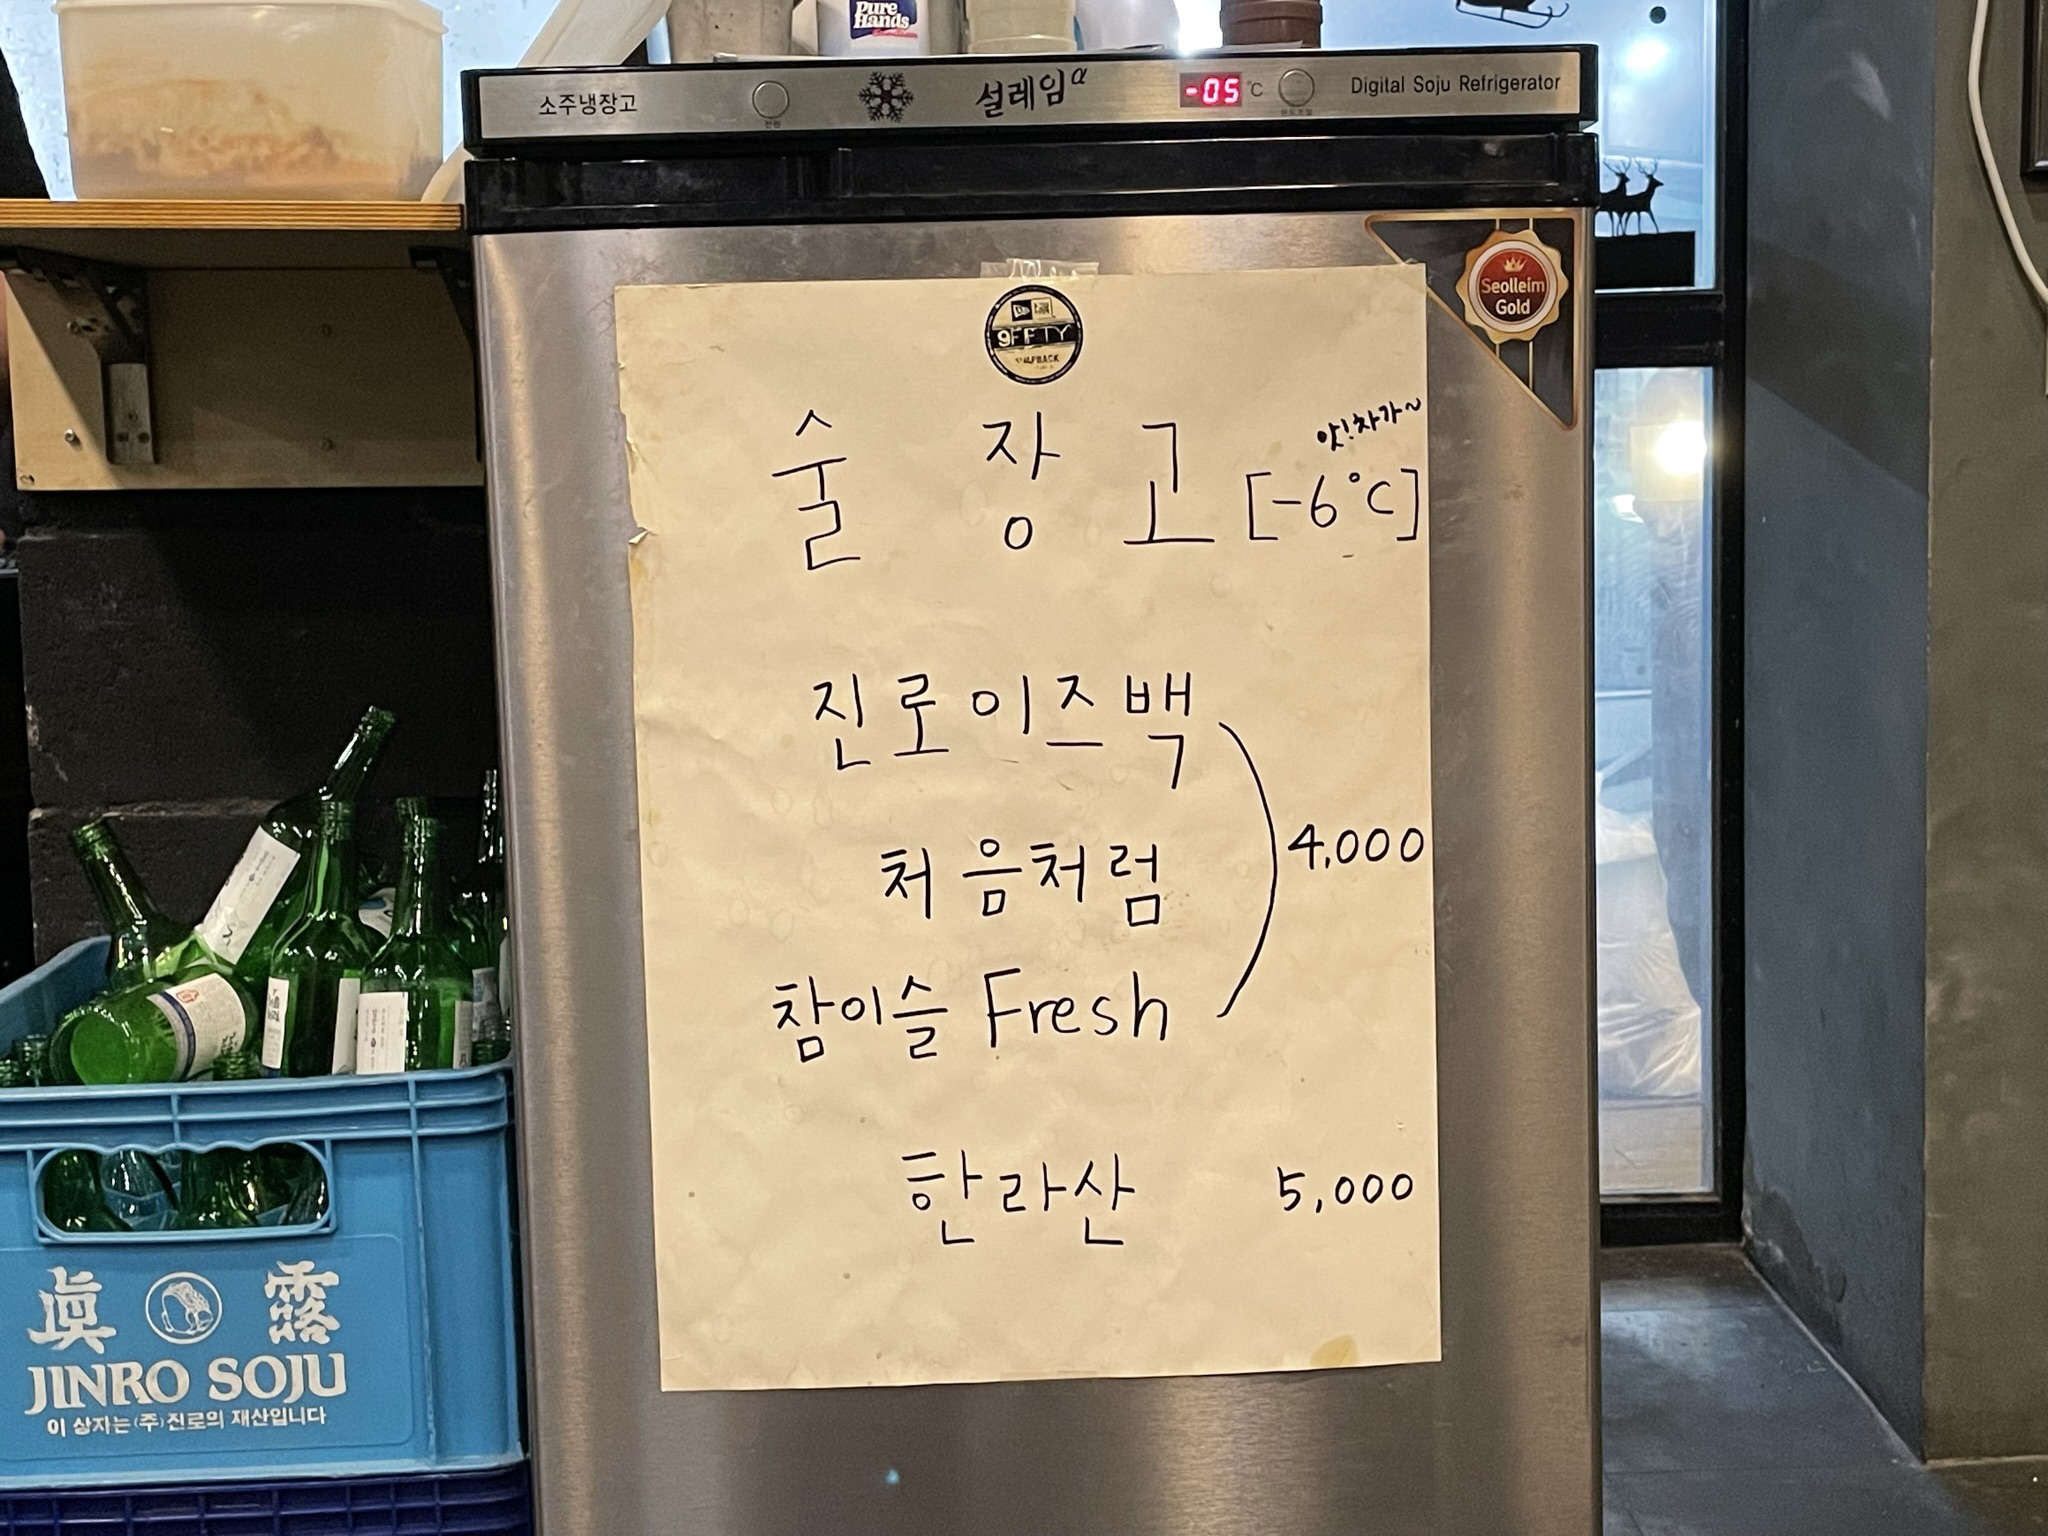 Pure
Hands
소주냉장고
설레임α
-05 °C
Digital Soju Refrigerator
Seolleim
Gold
9FIFTY
술장고 [-6°C]
앗!차가~
진로이즈백
처음처럼
4,000
참이슬 Fresh
한라산 5,000
眞露
JINRO SOJU
이 상자는 (주)진로의 재산입니다